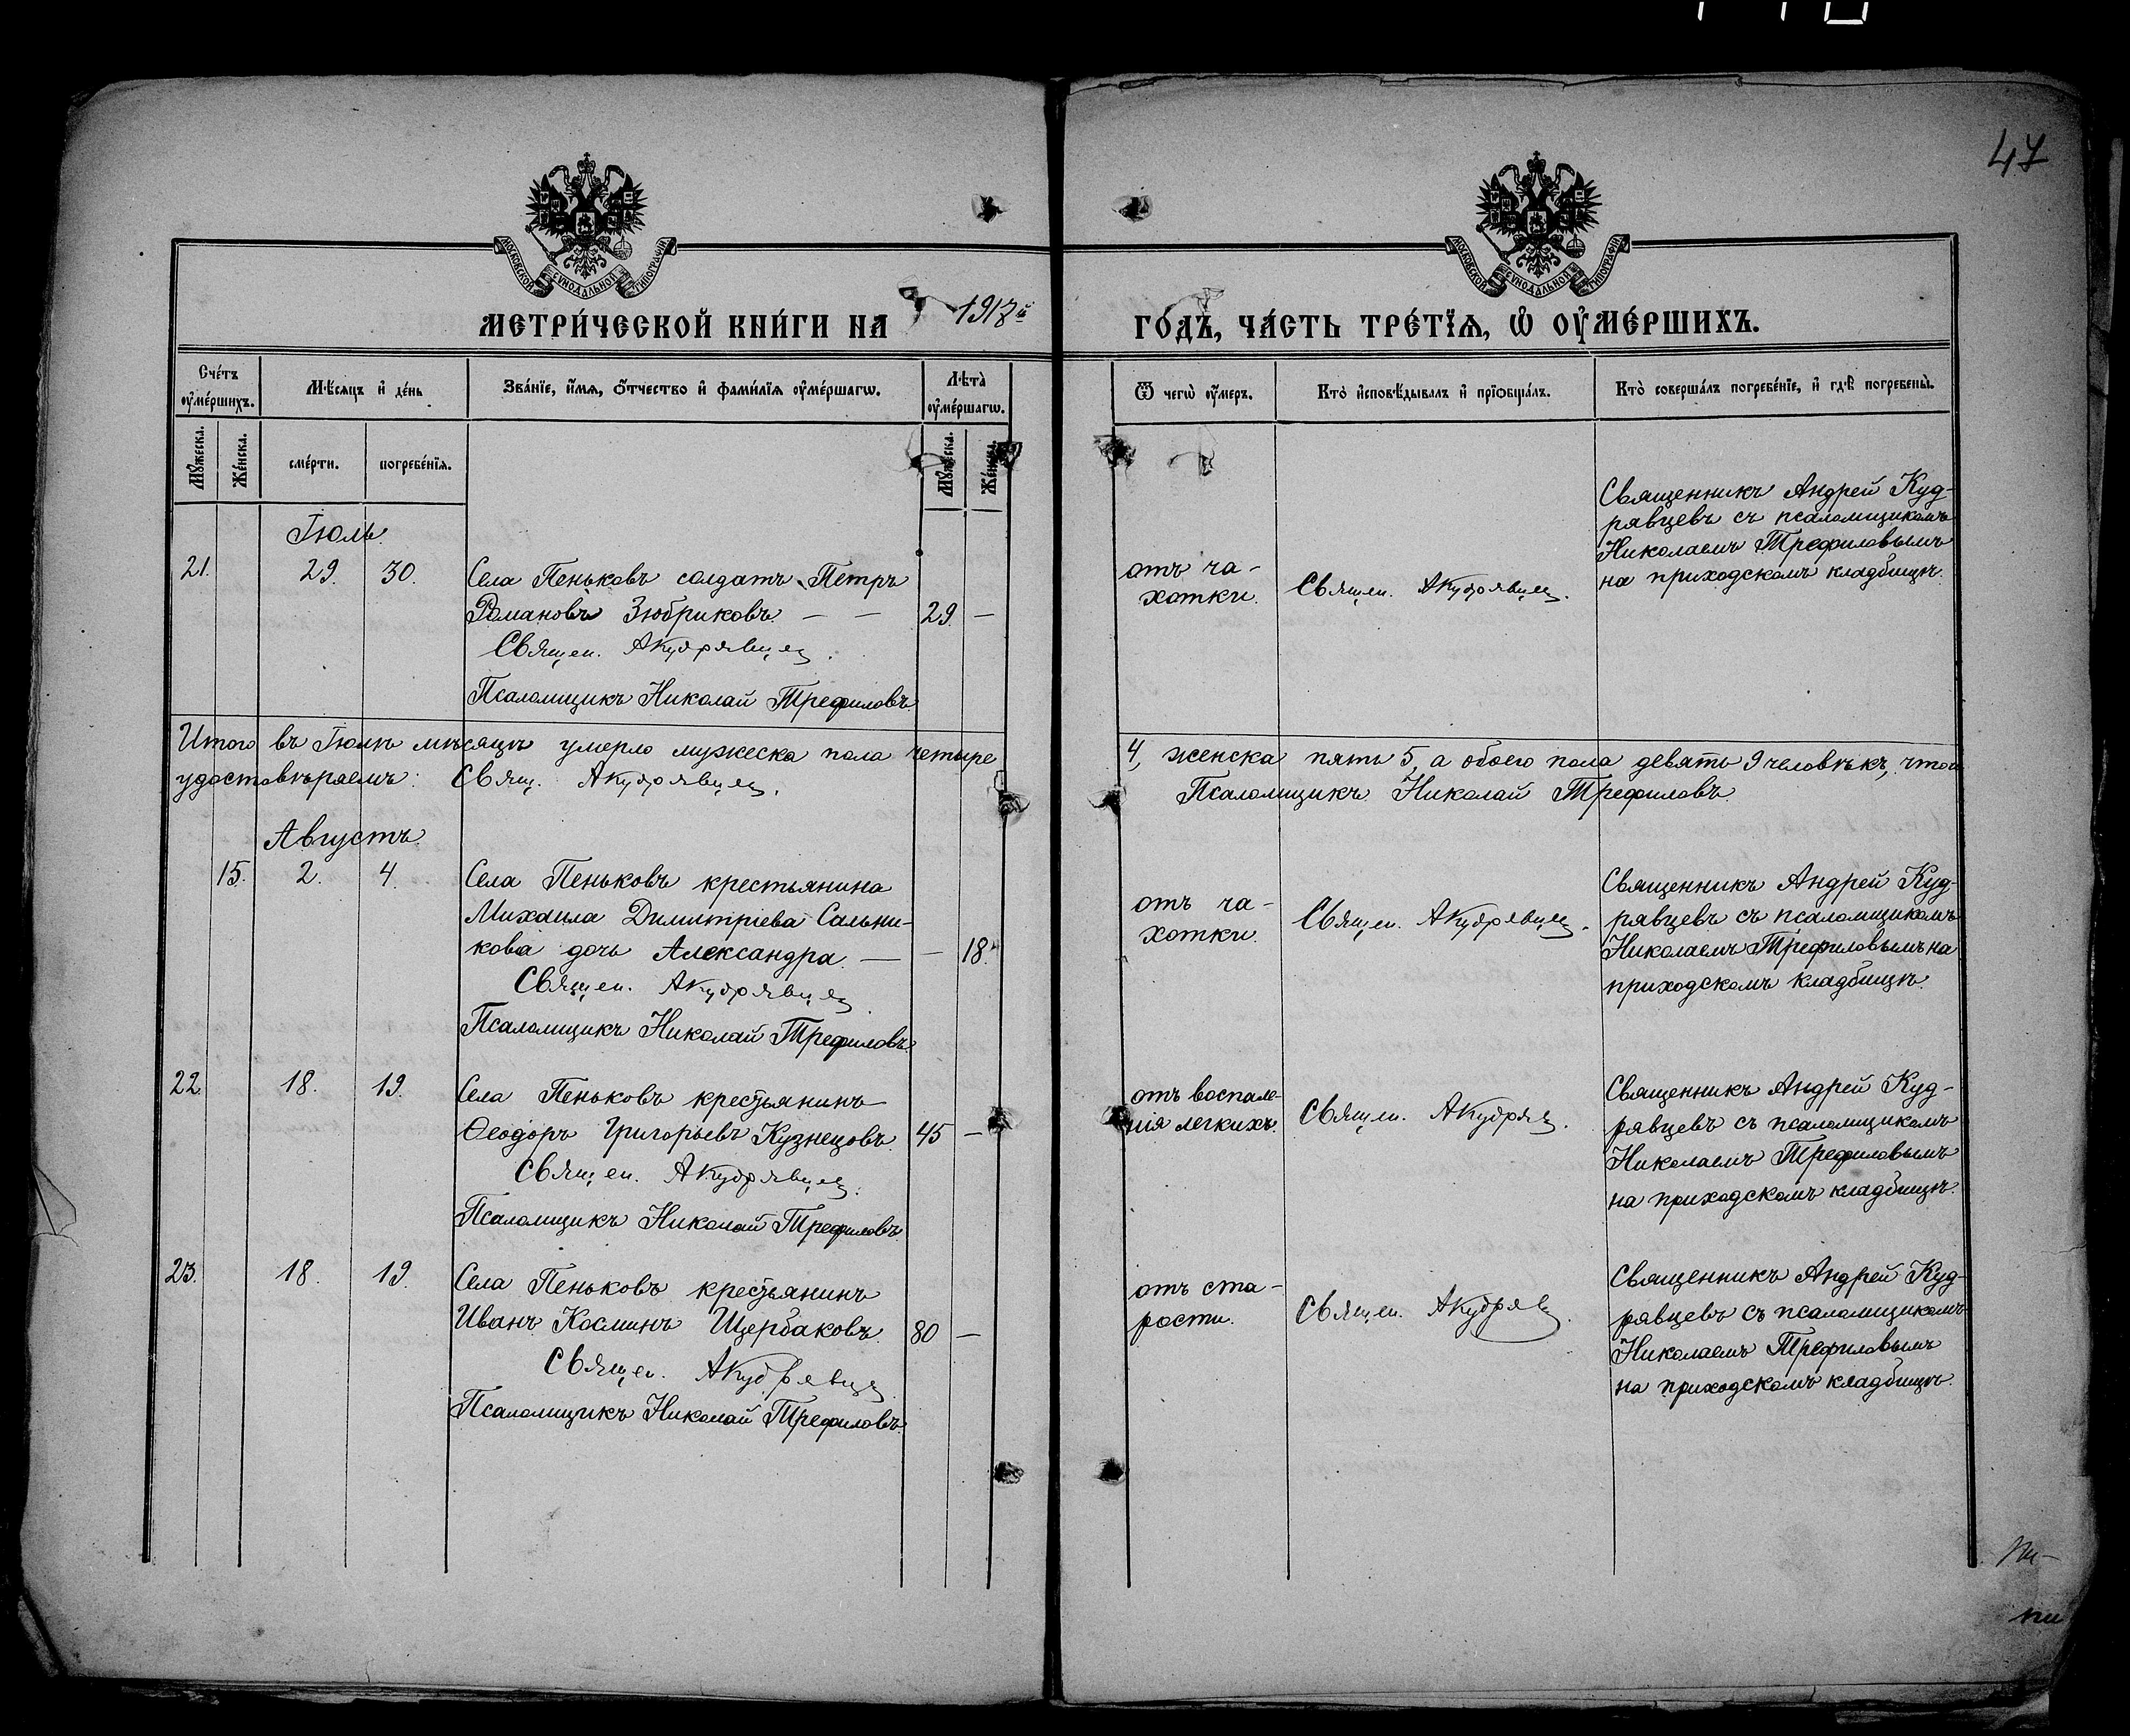 47
МОСКОВСКОЙ СѴНОДАЛЬНОЙ ТИПОГРАФІИ
МОСКОВСКОЙ СѴНОДАЛЬНОЙ ТИПОГРАФІИ
МЕТРИ́ЧЕСКОЙ КНИ́ГИ НА 1917й ГО́ДЪ, ЧА́СТЬ ТРЕ́ТІѦ, Ѡ҆ ОУ҆МЕ́РШИХЪ.
Сче́тъ оу҆ме́ршихъ.
Мѣ́сѧцъ и҆ де́нь
Зва́нїе, и҆́мѧ, ѻ҆́тчество и҆ фами́лїѧ оу҆ме́ршагѡ.
Лѣ́та̀ оу҆ме́ршагѡ.
Ѿ чегѡ̀ оу҆́меръ.
Кто̀ и҆сповѣ́дывалъ и҆ прїѡбща́лъ.
Кто̀ соверша́лъ погребе́нїе, и҆ гдѣ̀ погребены̀.
Мꙋ́жеска.
Же́нска.
сме́рти.
погребе́нїѧ.
Мꙋ́жеска.
Же́нска.
Іюль.
21. 29. 30. Села Пеньковъ солдатъ Петръ
Романовъ Зюбриковъ — — 29. —
Священ. АКудрявцев.
Псаломщикъ Николай Трефиловъ.
отъ ча-
хотки.
Священ. АКудрявцев.
Священникъ Андрей Куд-
рявцевъ съ псаломщикомъ
Николаемъ Трефиловымъ
на приходскомъ кладбищѣ.
Итого въ Іюлѣ мѣсяцѣ умерло мужеска пола четыре 4, женска пять 5, а обоего пола девять 9 человѣкъ, что и
удостовѣряемъ: Свящ. АКудрявцев. Псаломщикъ Николай Трефиловъ.
Августъ.
15. 2. 4. Села Пеньковъ крестьянина
Михаила Димитріева Сальни-
кова дочь Александра. — — 18.
Священ. АКудрявцев
Псаломщикъ Николай Трефиловъ.
отъ ча-
хотки.
Священ. АКудрявцев.
Священникъ Андрей Куд-
рявцевъ съ псаломщикомъ
Николаемъ Трефиловымъ на
приходскомъ кладбищѣ.
22. 18. 19. Села Пеньковъ крестьянинъ
Ѳеодоръ Григорьевъ Кузнецовъ. 45 —
Священ. АКудрявцев.
Псаломщикъ Николай Трефиловъ.
отъ воспале-
нія легкихъ.
Священ. АКудряв.
Священникъ Андрей Куд-
рявцевъ съ псаломщикомъ
Николаемъ Трефиловымъ
на приходскомъ кладбищѣ.
23. 18. 19. Села Пеньковъ крестьянинъ
Иванъ Косминъ Щербаковъ. 80 —
Священ. АКудрявцев
Псаломщикъ Николай Трефиловъ.
отъ ста-
рости.
Священ. АКудряв.
Священникъ Андрей Куд-
рявцевъ съ псаломщикомъ
Николаемъ Трефиловымъ
на приходскомъ кладбищѣ.